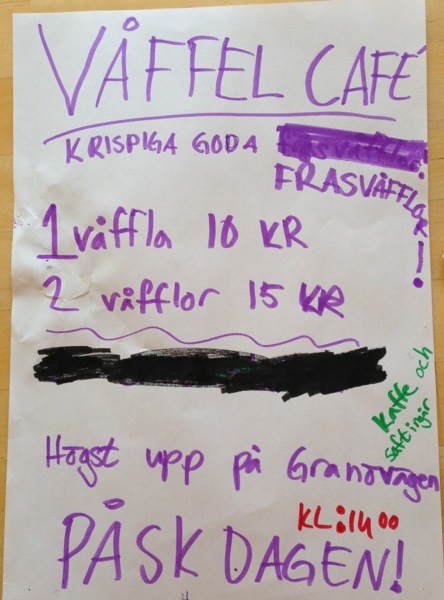 VÅFFEL CAFÉ
KRISPIGA GODA
FRASVÅFFLOR!
1 våffla 10 KR
2 våfflor 15 KR
Kaffe och
Saft ingår
Högst upp på Granövägen
KL:1400
PÅSK DAGEN!